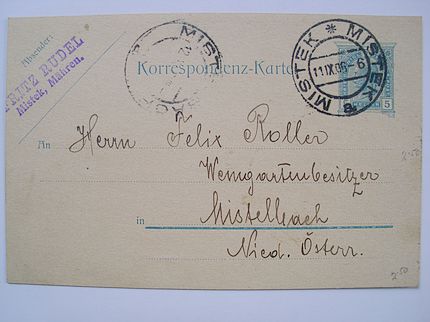 Absender:
FRITZ RUDEL
Mistek, Mähren.
MISTEK
Korrespondenz-Karte
MISTEK * MISTEK
11 IX 06-6
a
5
An Herrn Felix Roller
Weingartenbesitzer
in Mistelbach
Nied. Österr.
2.50
2.50